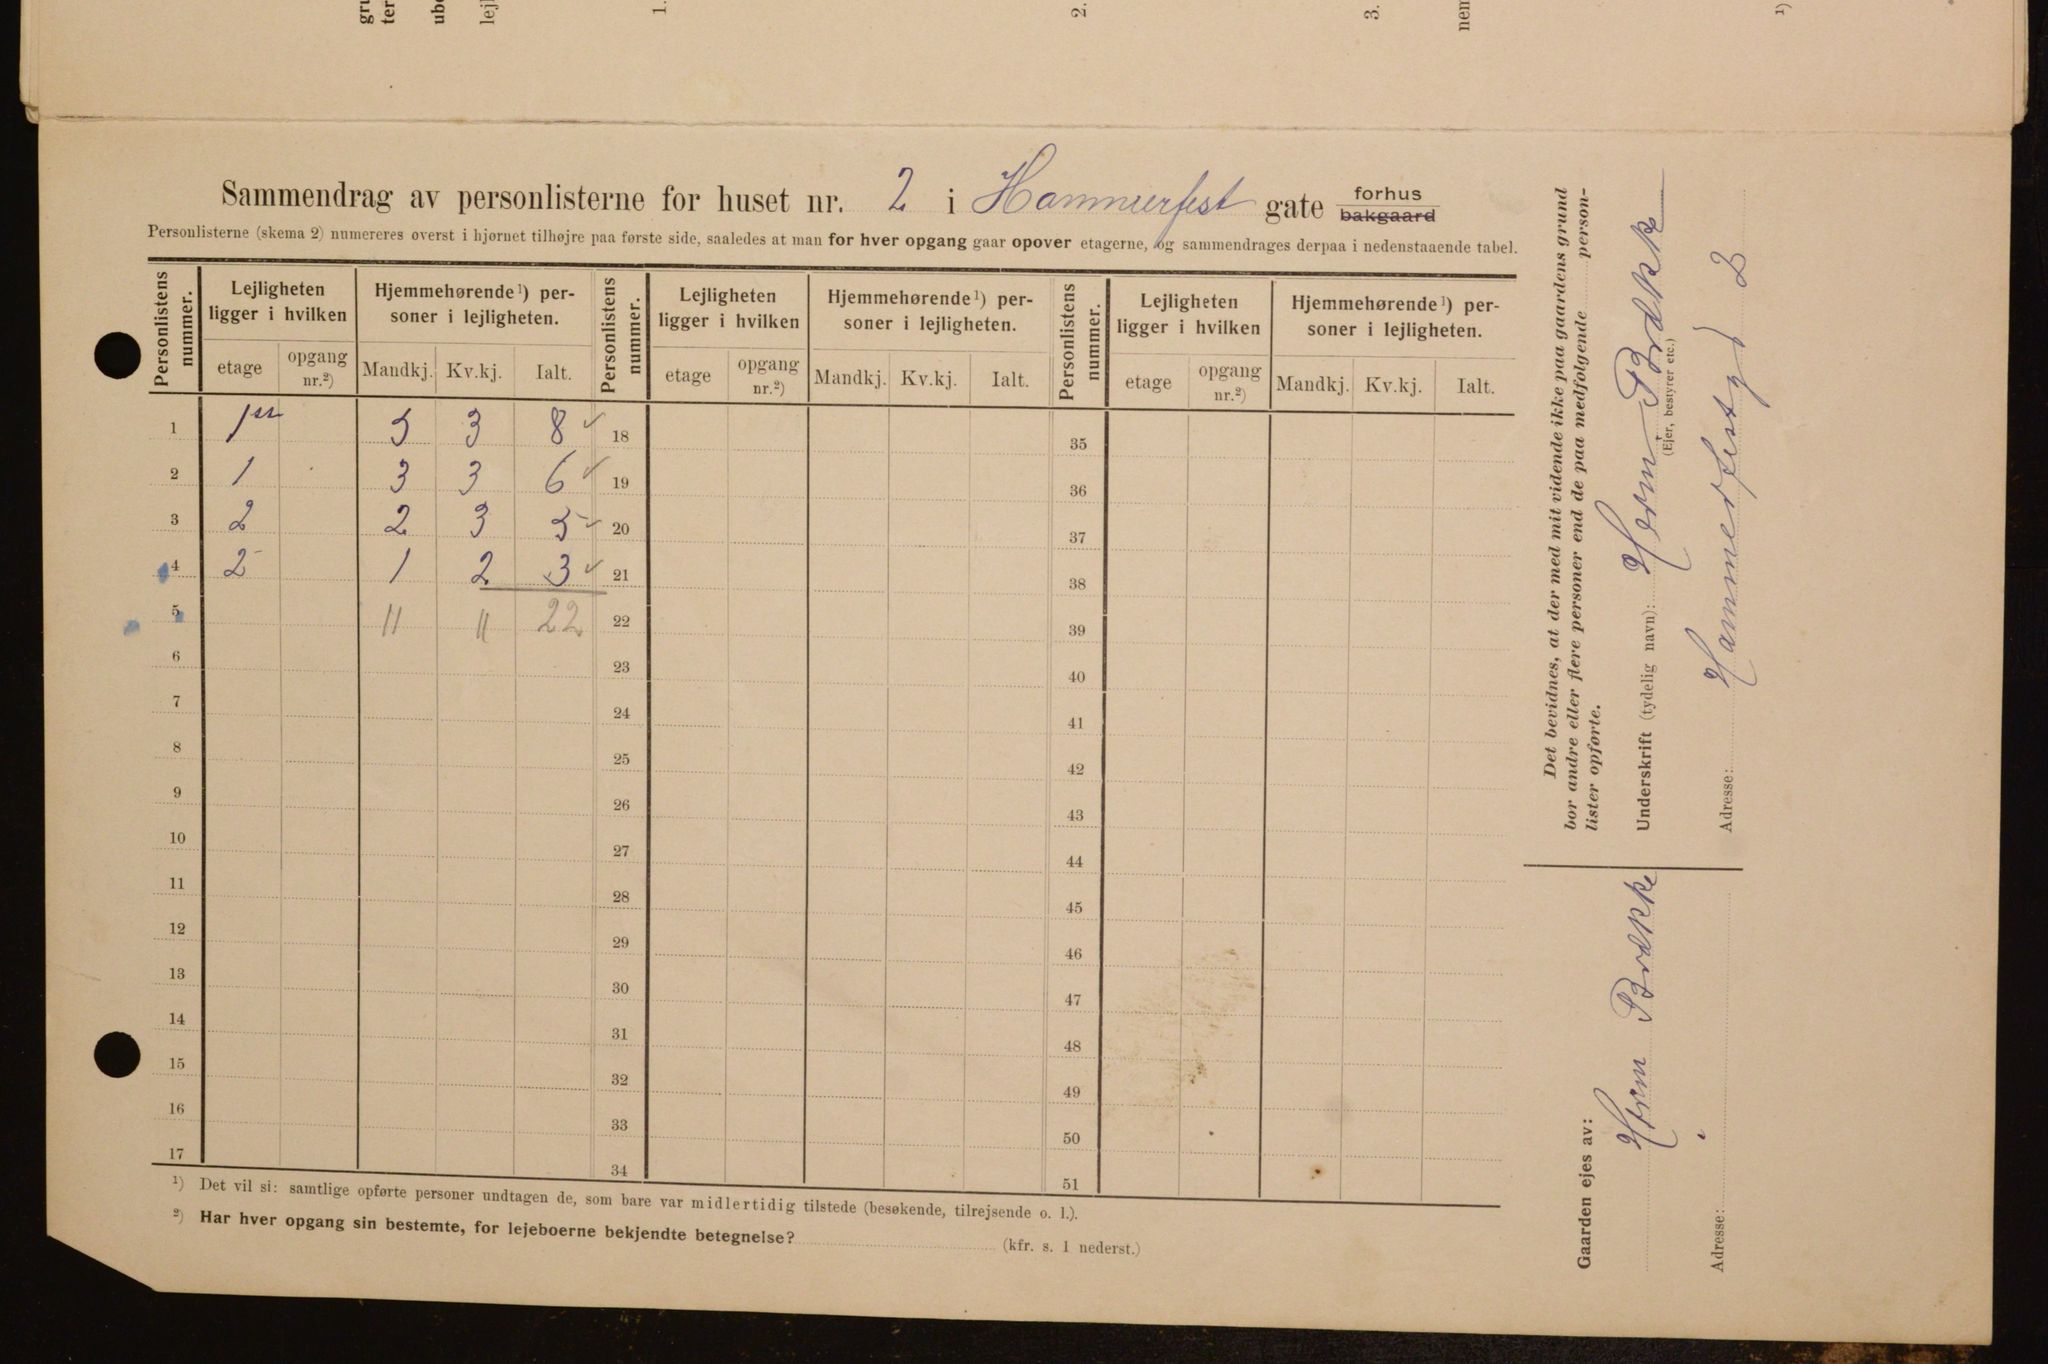 gru
ter
ube
lejl
1.
2.
3.
nem
1)
Sammendrag av personlisterne for huset nr. 2 i Hammerfest gate forhus bakgaard
Personlisterne (skema 2) numereres øverst i hjørnet tilhøjre paa første side, saaledes at man for hver opgang gaar opover etagerne, og sammendrages derpaa i nedenstaaende tabel.
Personlistens nummer. | Lejligheten ligger i hvilken | Hjemmehørende¹) personer i lejligheten. | Personlistens nummer. | Lejligheten ligger i hvilken | Hjemmehørende¹) personer i lejligheten. | Personlistens nummer. | Lejligheten ligger i hvilken | Hjemmehørende¹) personer i lejligheten.
etage | opgang nr.²) | Mandkj. | Kv.kj. | Ialt. | etage | opgang nr.²) | Mandkj. | Kv.kj. | Ialt. | etage | opgang nr.²) | Mandkj. | Kv.kj. | Ialt.
1 5 3 8 ✓ 18 35
2 1 3 3 6 ✓ 19 36
3 2 2 3 5 ✓ 20 37
4 2 1 2 3 ✓ 21 38
5 11 11 22 22 39
6 23 40
7 24 41
8 25 42
9 26 43
10 27 44
11 28 45
12 29 46
13 30 47
14 31 48
15 32 49
16 33 50
17 34 51
¹) Det vil si: samtlige opførte personer undtagen de, som bare var midlertidig tilstede (besøkende, tilrejsende o. l.).
²) Har hver opgang sin bestemte, for lejeboerne bekjendte betegnelse? (kfr. s. 1 nederst.)
Det bevidnes, at der med mit vidende ikke paa gaardens grund
bor andre eller flere personer end de paa medfølgende person-
lister opførte.
Underskrift (tydelig navn): Herm. Brække
(Ejer, bestyrer etc.)
Adresse: Hammerfestgt 2
Gaarden ejes av:
Herm Brække
Adresse: